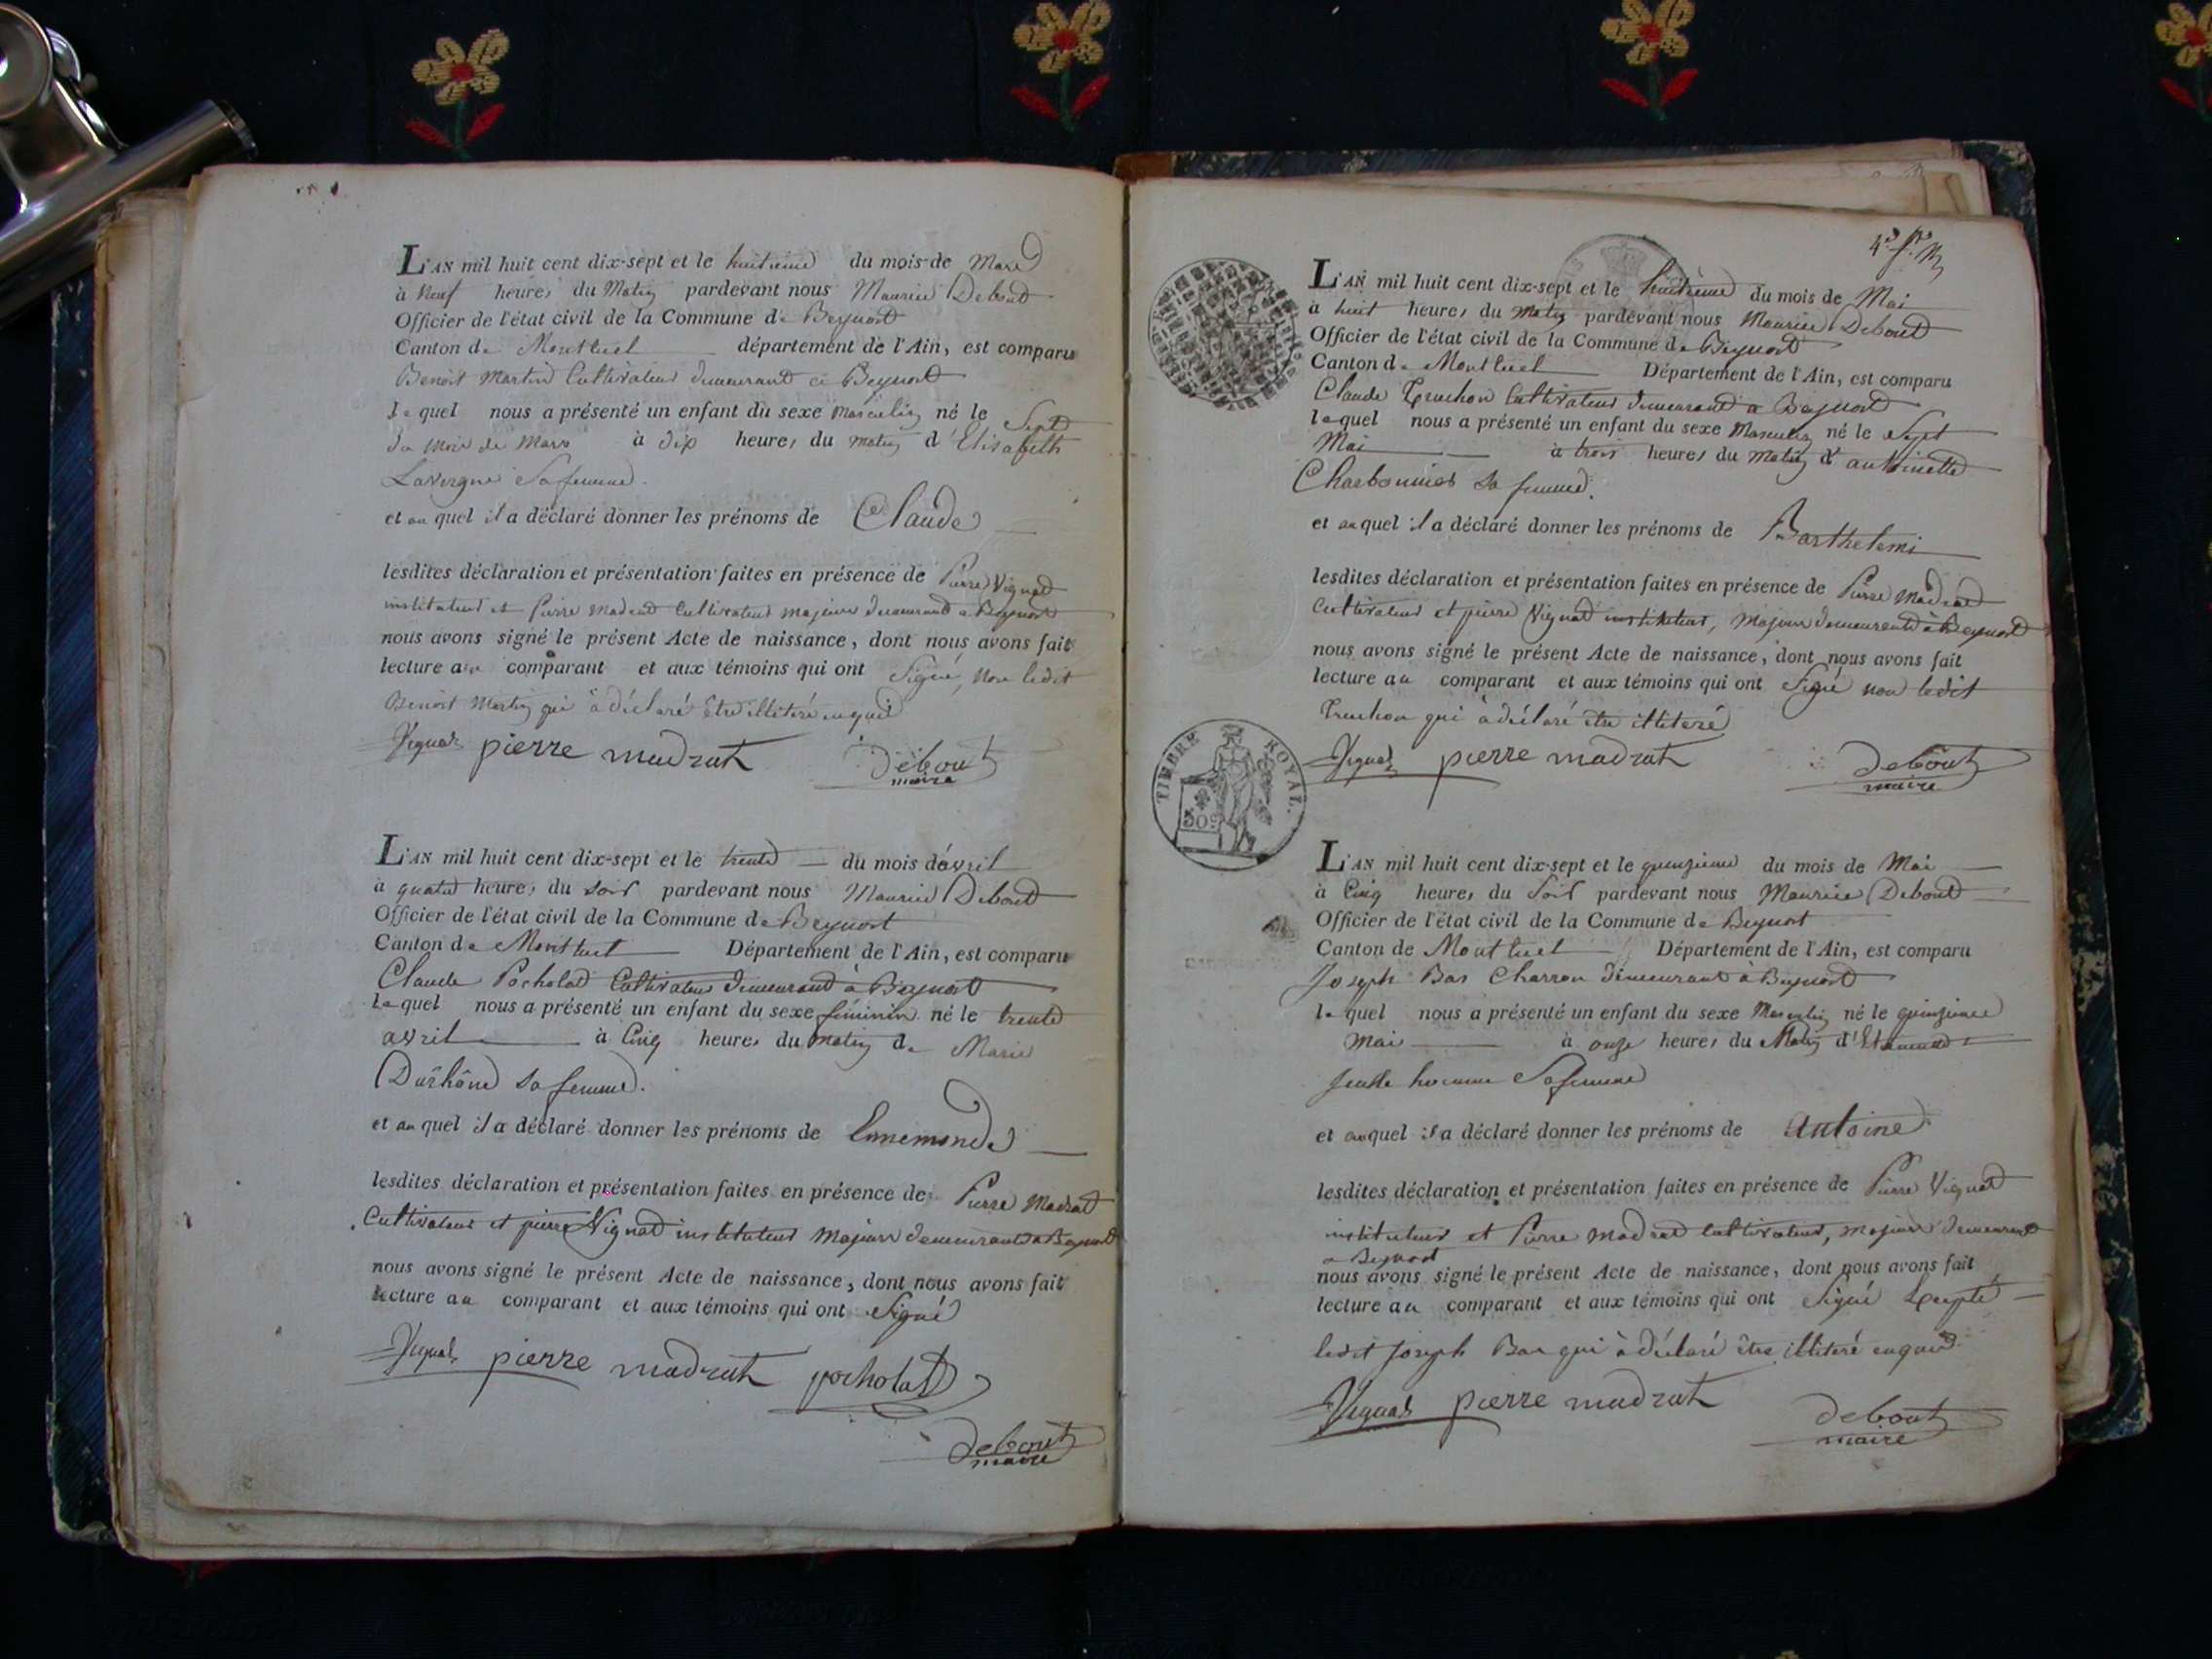 L'AN mil huit cent dix-sept et le huitieme du mois de Mars
à Neuf heures du Matin pardevant nous Maurice Debout
Officier de l'état civil de la Commune de Beynost
Canton de Montluel département de l'Ain, est comparu
Benoit Martin Cultivateur demeurant à Beynost
lequel nous a présenté un enfant du sexe Masculin né le Sept
du mois de Mars à dix heures du matin d'Elisabeth
Lavergne Sa femme.
et auquel il a déclaré donner les prénoms de Claude
lesdites déclaration et présentation faites en présence de Pierre Vignat
instituteur et pierre Madrat Cultivateur majeurs demeurant a Beynost
nous avons signé le présent Acte de naissance, dont nous avons fait
lecture au comparant et aux témoins qui ont Signé, Non ledit
Benoit Martin qui à déclaré être illiteré enquis
Vignat pierre madrat debout
maire
L'AN mil huit cent dix-sept et le trente du mois d'avril
à quatre heures du soir pardevant nous Maurice Debout
Officier de l'état civil de la Commune de Beynost
Canton de Montluel Département de l'Ain, est comparu
Claude Pocholat Cultivateur demeurant à Beynost
lequel nous a présenté un enfant du sexe féminin né le trente
avril à Cinq heures du Matin de Marie
Durhône sa femme.
et auquel il a déclaré donner les prénoms de Ennemonde
lesdites déclaration et présentation faites en présence de Pierre Madrat
Cultivateur et pierre Vignat instituteur Majeurs demeurant a Beynost
nous avons signé le présent Acte de naissance, dont nous avons fait
lecture au comparant et aux témoins qui ont Signé
Vignat pierre madrat pocholat
debout
maire
L'AN mil huit cent dix-sept et le huitième du mois de Mai
à huit heures du Matin pardevant nous Maurice Debout
Officier de l'état civil de la Commune de Beynost
Canton de Montluel Département de l'Ain, est comparu
Claude Truchon Cultivateur demeurant a Beynost
lequel nous a présenté un enfant du sexe Masculin né le Sept
Mai à trois heures du Matin d'antoinette
Charbonnier sa femme.
et auquel il a déclaré donner les prénoms de Barthelemi
lesdites déclaration et présentation faites en présence de Pierre Madrat
Cultivateur et pierre Vignat instituteur, Majeurs demeurant à Beynost
nous avons signé le présent Acte de naissance, dont nous avons fait
lecture au comparant et aux témoins qui ont Signé non ledit
Truchon qui à déclaré être illiteré
TIMBRE ROYAL.
50c
Vignat pierre madrat debout
maire
L'AN mil huit cent dix-sept et le quinzieme du mois de Mai
à Cinq heures du Soir pardevant nous Maurice Debout
Officier de l'état civil de la Commune de Beynost
Canton de Montluel Département de l'Ain, est comparu
Joseph Bas Charron demeurant à Beynost
lequel nous a présenté un enfant du sexe Masculin né le quinzieme
Mai à onze heures du Matin
homme Sa femme
et auquel il a déclaré donner les prénoms de Antoine
lesdites déclaration et présentation faites en présence de Pierre Vignat
instituteur et Pierre Madrat cultivateur, majeurs demeurant
a Beynost
nous avons signé le présent Acte de naissance, dont nous avons fait
lecture au comparant et aux témoins qui ont Signé Excepté
ledit Joseph Bas qui à déclaré être illiteré enquis
Vignat pierre madrat debout
maire